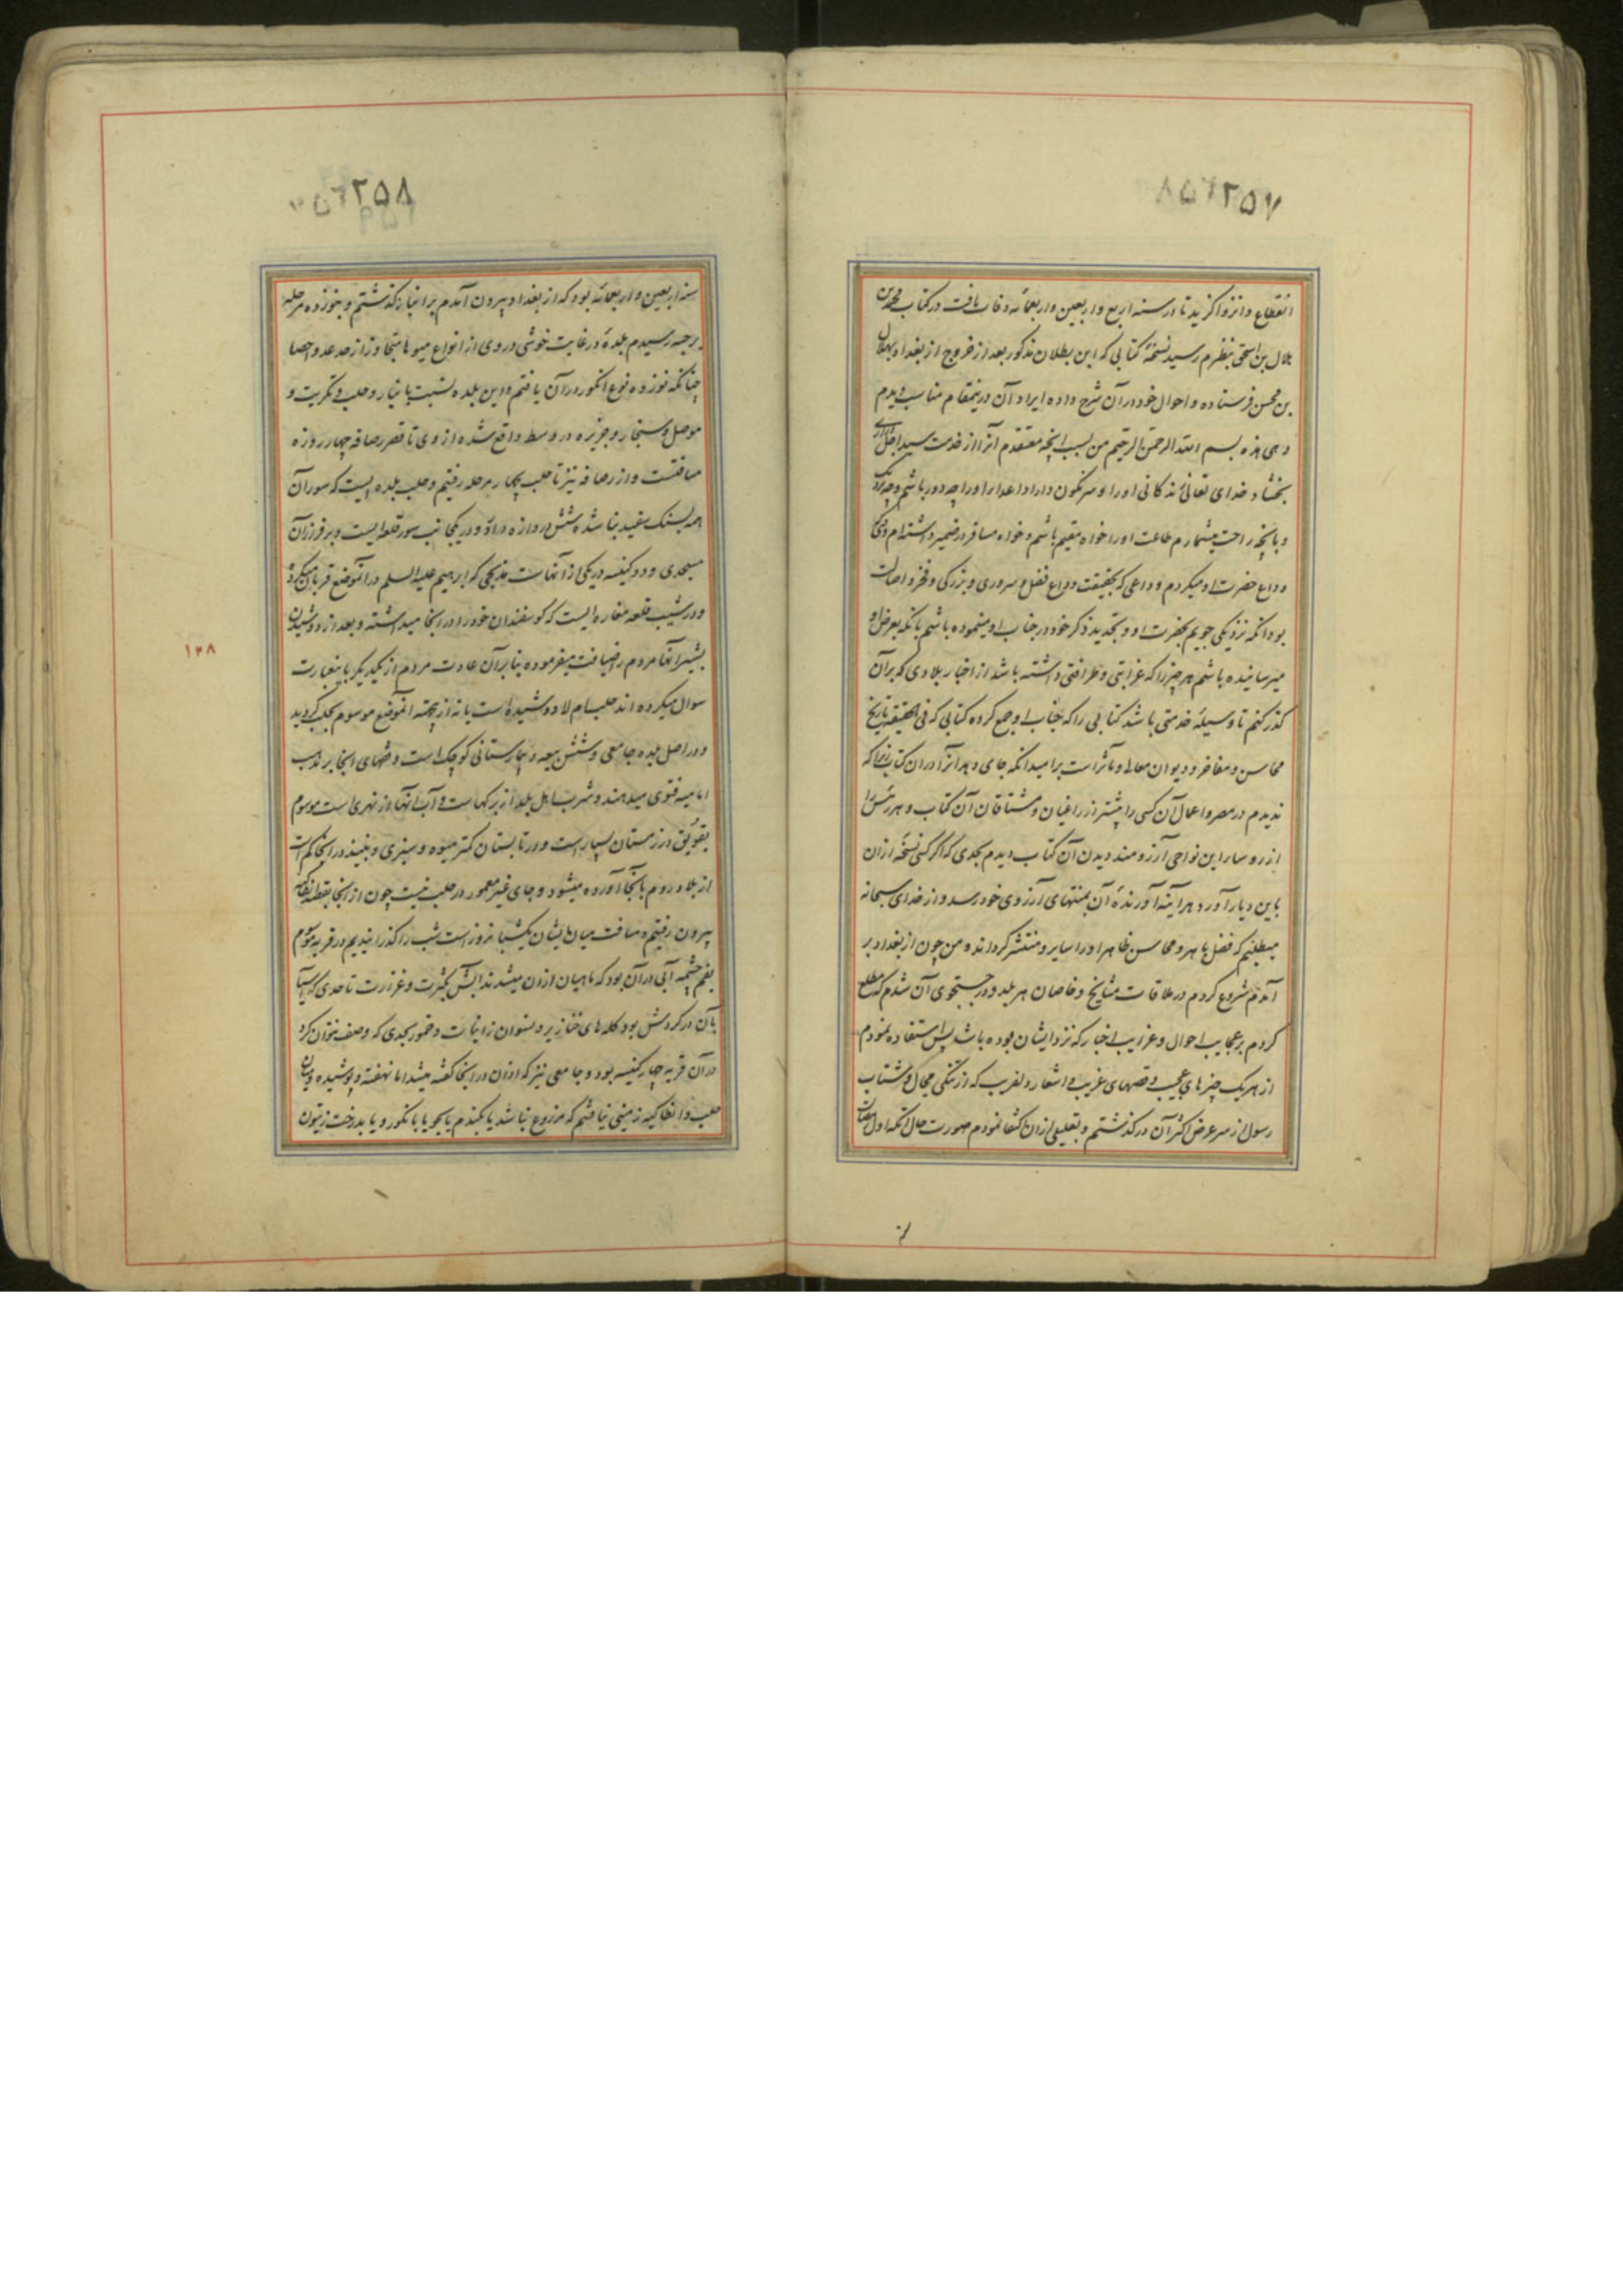 ۲۵۷
انقطاع و انزوا گزید تا در سنه اربع و اربعین و اربعمائه وفات یافت در کتاب محمد بن
هلال بن اسحق بنظرم رسید نسخهٔ کتابی که این بطلان مذکور بعد از خروج از بغداد بهلال
بن محسن فرستاده و احوال خود در آن شرح داده ایراد آن درینمقام مناسب دیدم
و هی هذه بسم الله الرحمن الرحیم من بسبب آنچه معتقدم آنرا از خدمت سید اجل
بخشاد خدای تعالی زندگانی او را و سرنگون داراد اعدا او را چه دور باشم و چه نزدیک
و بآنچه راحت میشمارم طاعت او را خواه مقیم باشم و خواه مسافر در ضمیر داشته‌ام
وداع حضرت او میکردم وداعی که بحقیقت وداع فضل و سروری و بزرگی و فخر و اصالت
بود آنکه نزدیکی جویم بحضرت او و تجدید ذکر خود در جناب او مینموده باشم بآنکه بعرض او
میرسانیده باشم هر چیز را که غرابتی و ظرافتی داشته باشد از اخبار بلادی که بر آن
گذر کنم تا وسیلهٔ خدمتی باشد کتابی را که جناب او جمع کرده کتابی که فی الحقیقه تاریخ
محاسن و مفاخر و دیوان معالی و مآثر است بر امید آنکه جای دهد آنرا در ان کتاب زیرا که
ندیدم در مصر و اعمال آن کسی را بیشتر از راغبان و مشتاقان آن کتاب و هر رئیس را
از روسا این نواحی آرزومند دیدن آن کتاب دیدم بحدی که اگر کسی نسخه از ان
باین دیار آورد هر آینه آورندهٔ آن بمنتهای آرزوی خود رسد و از خدای سبحانه
میطلبم که فضل باهر و محاسن ظاهر او را سایر و منتشر گرداند و من چون از بغداد بر
آمدم شروع کردم در ملاقات مشایخ و خاصان هر بلد و در جستجوی آن شدم که مطلع
کردم بر عجایب احوال و غرایب اخبار که نزد ایشان بوده باشد پس استفاده نمودم
از هر یک چیزهای عجیب و قصهای غریب و اشعار دلفریب که از تنگی مجال و شتاب
رسول از سر عرض اکثر آن در گذشتم و بقلیلی از ان اکتفا نمودم صورت حال آنکه اول
۲۵۸
سنه اربعین و اربعمائه بود که از بغداد بیرون آمدم بر انبار گذشتم و بنوزده مرحله
برحبه رسیدم بلدهٔ در غایت خوشی در وی از انواع میوها متجاوز از حد عد و احصا
چنانکه نوزده نوع انگور در آن یافتم و این بلده نسبت بانبار و حلب و تکریت و
موصل و سنجار و جزیره در وسط واقع شده از وی تا قصر رصافه چهار روزه
مسافتست و از رصافه نیز تا حلب بچهار مرحله رفتیم و حلب بلده ایست که سور آن
همه بسنگ سفید بنا شده شش دروازه دارد و در یکجانب سور قلعه ایست و بر فراز آن
مسجدی و دو کنیسه در یکی از آنهاست مذبحی که ابرهیم علیه السلم در آنموضع قربان میکرد
و در شیب قلعه مغاره ایست که گوسفندان خود را در اینجا میداشته و بعد از دوشیدن
بشیر آنها مردم را ضیافت میفرموده بنابر آن عادت مردم از یکدیگر باینعبارت
سوال میکرده‌اند حلب ام لا دوشیده است یا نه ازینجهته آنموضع موسوم بحلب گردید
و در اصل بلده جامعی و شش بیعه و بیمارستانی کوچک است و فقهای اینجا بر مذهب
امامیه فتوی میدهند و شرب اهل بلد از برکهاست و آب آنها از نهری است موسوم
بقویق در زمستان بسیار است و در تابستان کمتر میوه و سبزی و نبیذ در اینجا کم است
از بلاد روم بآنجا آورده میشود و جای غیر معمور در حلب نیست چون از اینجا بقصد انطاکیه
بیرون رفتیم و مسافت میان ایشان یکشبانروز است شب را گذرانیدیم در قریه موسوم
بعم چشمه آبی در آن بود که ماهیان از ان میشدند آبش بکثرت و غزارت تا حدی که آسیا
بآن در گردش بود گله‌های خنازیر و نسوان زانیات و خمور بحدی که وصف نتوان کرد
در آن قریه چهار کنیسه بود و جامعی نیز که اذان در اینجا گفته میشد اما نهفته و پوشیده و میان
حلب و انطاکیه زمینی نیافتم که مزروع نباشد یا بگندم یا بجو یا بانگور و یا بدرخت زیتون
۱۲۸